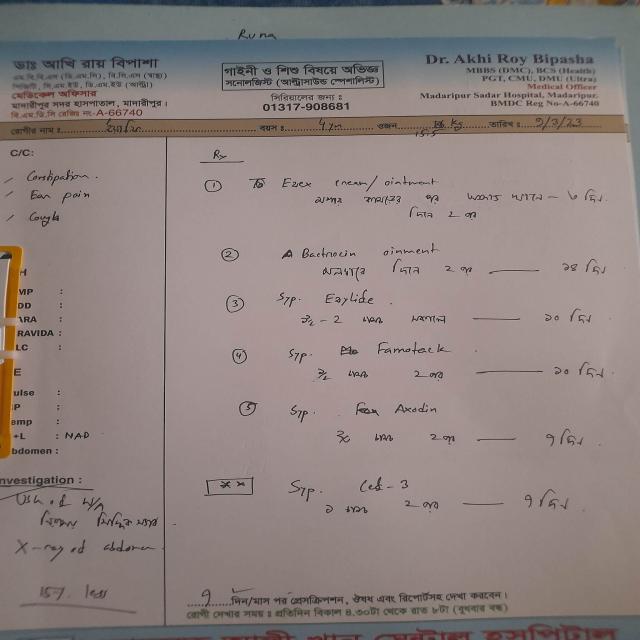 Runa
ডাঃ আখি রায় বিপাশা
এম.বি.বি.এস (ডি.এম.সি), বি.সি.এস (স্বাস্থ্য)
পিজিটি, সি.এম.ইউ, ডি.এম.ইউ (আল্ট্রা)
মেডিকেল অফিসার
মাদারীপুর সদর হাসপাতাল, মাদারীপুর।
বি.এম.ডি.সি রেজিঃ নং-A-66740
গাইনী ও শিশু বিষয়ে অভিজ্ঞ
সনোলজিস্ট (আল্ট্রাসাউন্ড স্পেশালিস্ট)
সিরিয়ালের জন্য :
01317-908681
Dr. Akhi Roy Bipasha
MBBS (DMC), BCS (Health)
PGT, CMU, DMU (Ultra)
Medical Officer
Madaripur Sadar Hospital, Madaripur.
BMDC Reg No-A-66740
রোগীর নাম : বয়স : 4 yrs ওজন 15.5 kg তারিখ : ৭/3/23
C/C:
Constipation.
Ear pain
Cough
H
MP :
DD :
ARA :
RAVIDA :
LC :
E
ulse :
P :
emp :
+L : NAD
bdomen :
nvestigation :
X-ray of abdomen
15% less
Rx
1 Ezex cream/ointment
দিনে ২ বার
2 Bactrocin oinment
দিনে ২ বার — ১৪ দিন
3 Syp. Ezylide.
১/২ - 2 চামচ সকালে — ১০ দিন
4 Syp. Famotack.
১/২ চামচ ২ বার — ১০ দিন
5 Syp. Axodin
১/২ চামচ ২ বার — ৭ দিন.
** Syp. Cef-3
১ চামচ ২ বার — ৭ দিন.
৭ দিন/মাস পর প্রেসক্রিপশন, ঔষধ এবং রিপোর্টসহ দেখা করবেন।
রোগী দেখার সময় : প্রতিদিন বিকাল ৪.৩০টা থেকে রাত ৮টা (বুধবার বন্ধ)